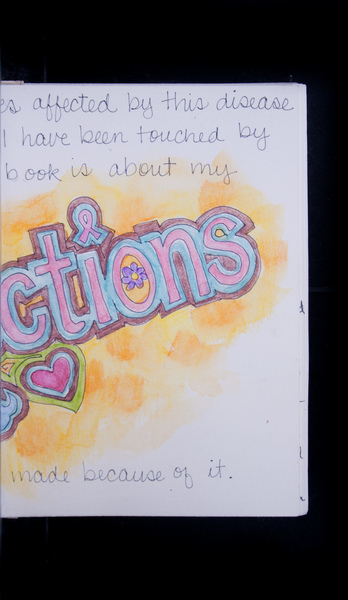 es affected by this disease
I have been touched by
book is about my
ctions
made because of it.